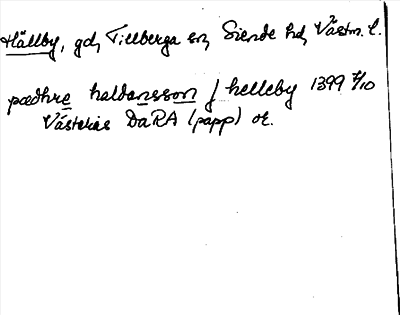 Hällby, gd, Tillberga sn, Siende hd, Västm. l.
pædhre haldansson j helleby 1399 7/10
Västerås DaRA (papp) or.